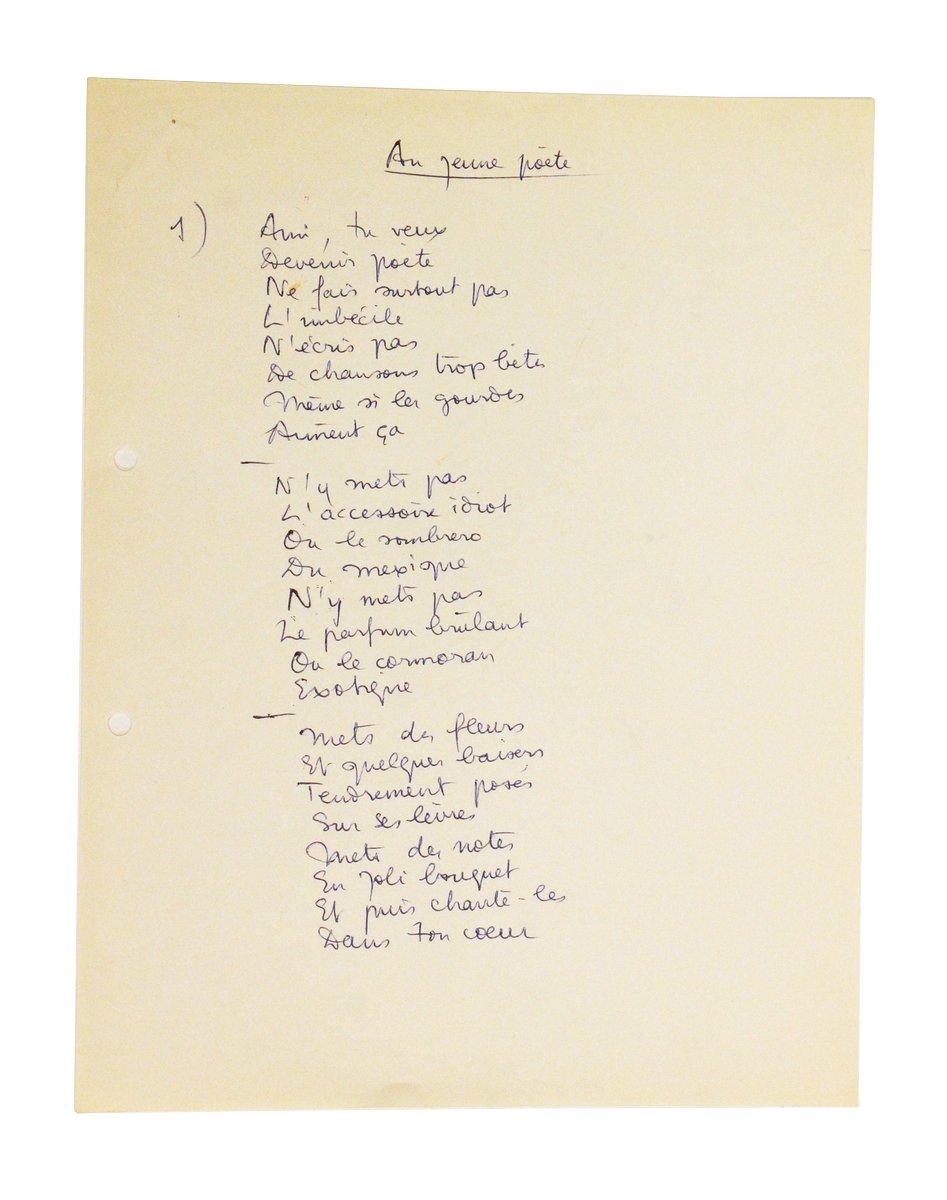 Au jeune poète
1)
Ami, tu veux
Devenir poète
Ne fais surtout pas
L'imbécile
N'écris pas
De chansons trop bêtes
Même si les gourdes
Aiment ça
N'y mets pas
L'accessoire idiot
Ou le sombrero
Du mexique
N'y mets pas
Le parfum brûlant
Ou le cormoran
Exotique
Mets des fleurs
Et quelques baisers
Tendrement posés
Sur ses lèvres
Mets des notes
En joli bouquet
Et puis chante-les
Dans ton cœur